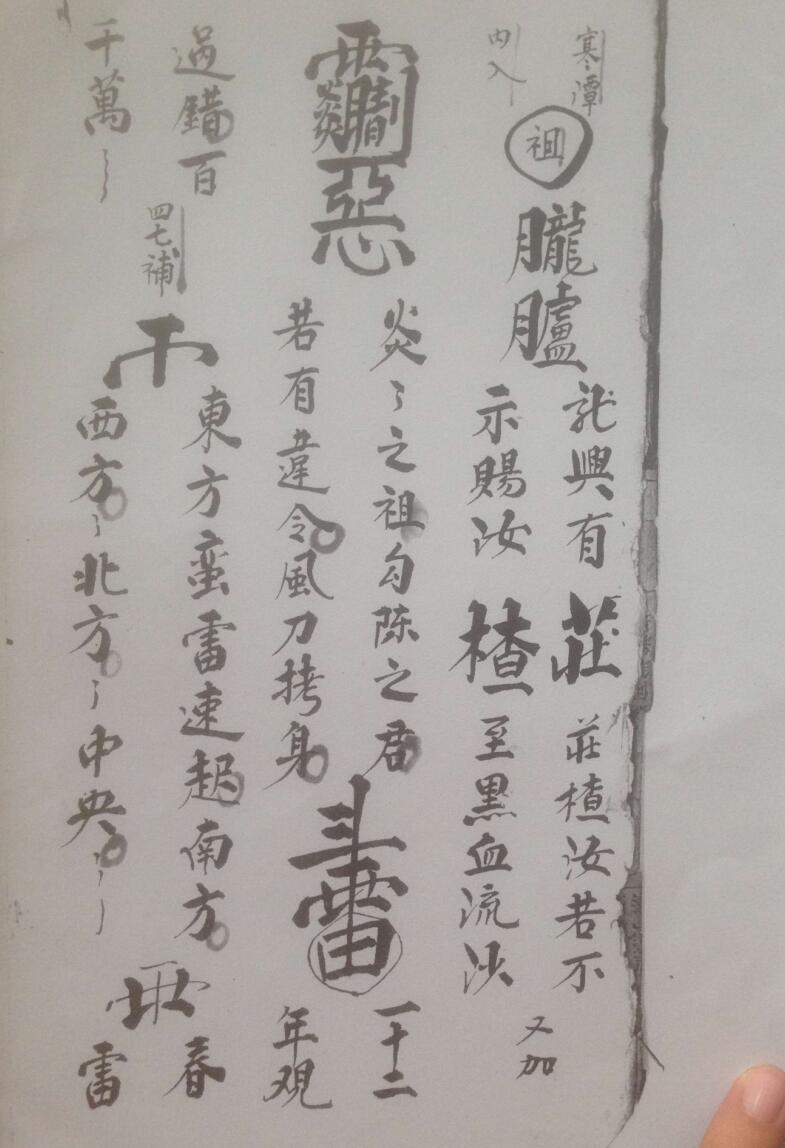 寒潭
内入
祖
朧臚
龍興有
示賜汝
莊
楂
莊楂汝若不
至黑血流沙
又加
惡
炎〻之祖勾陈之君
若有違令風刀拷身
斗雷
一十二
年观
過錯百
千萬〻
四七補
東方蛮雷速起南方
西方〻北方〻中央〻〻
春
雷